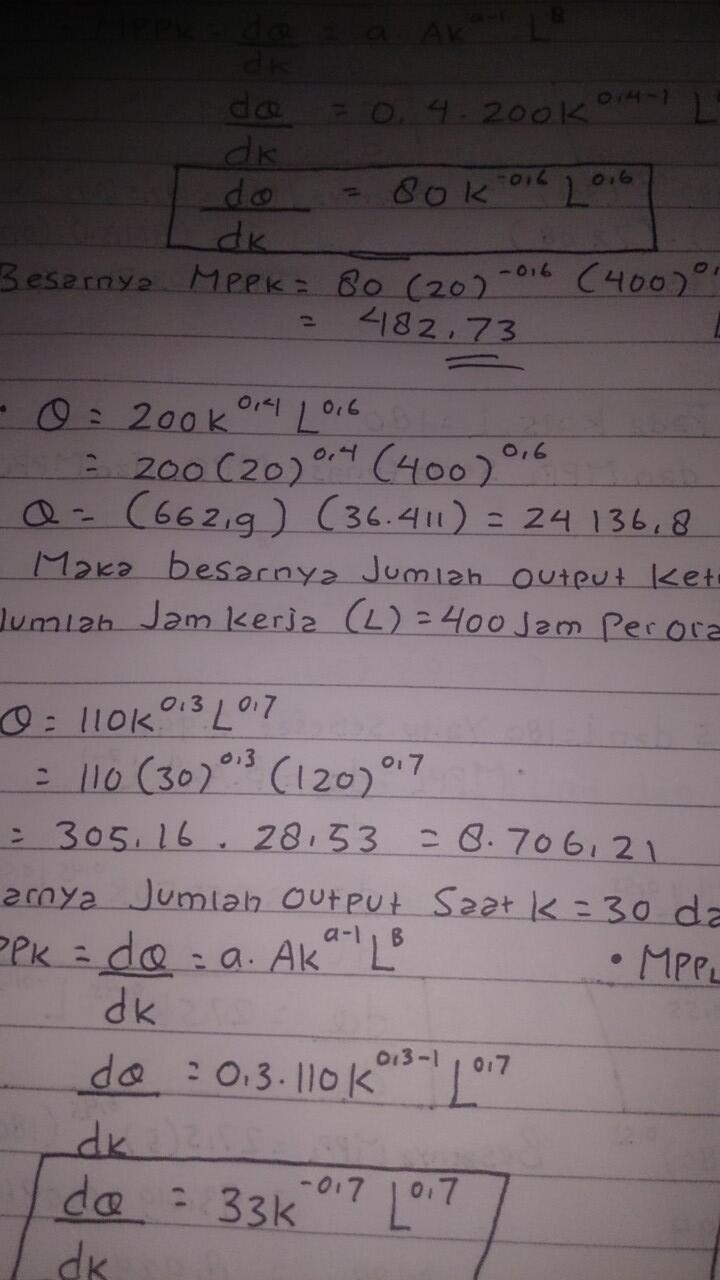 • MPPK = dQ/dK = a AK^a-1 L^B
dQ/dK = 0.4.200K^0,4-1 L
dQ/dK = 80K^-0,6 L^0,6
Besarnya MPPK = 80 (20)^-0,6 (400)^0,
= 482,73
• Q = 200K^0,4 L^0,6
= 200 (20)^0,4 (400)^0,6
Q = (662,9) (36.411) = 24 136,8
Maka besarnya Jumlah output Ket
Jumlah Jam kerja (L) = 400 Jam Per ora
Q = 110K^0,3 L^0,7
= 110 (30)^0,3 (120)^0,7
= 305,16 . 28,53 = 8.706,21
arnya Jumlah output Saat K = 30 da
PPK = dQ/dK = a. AK^a-1 L^B • MPPL
dQ/dK = 0,3.110K^0,3-1 L^0,7
dQ/dK = 33K^-0,7 L^0,7